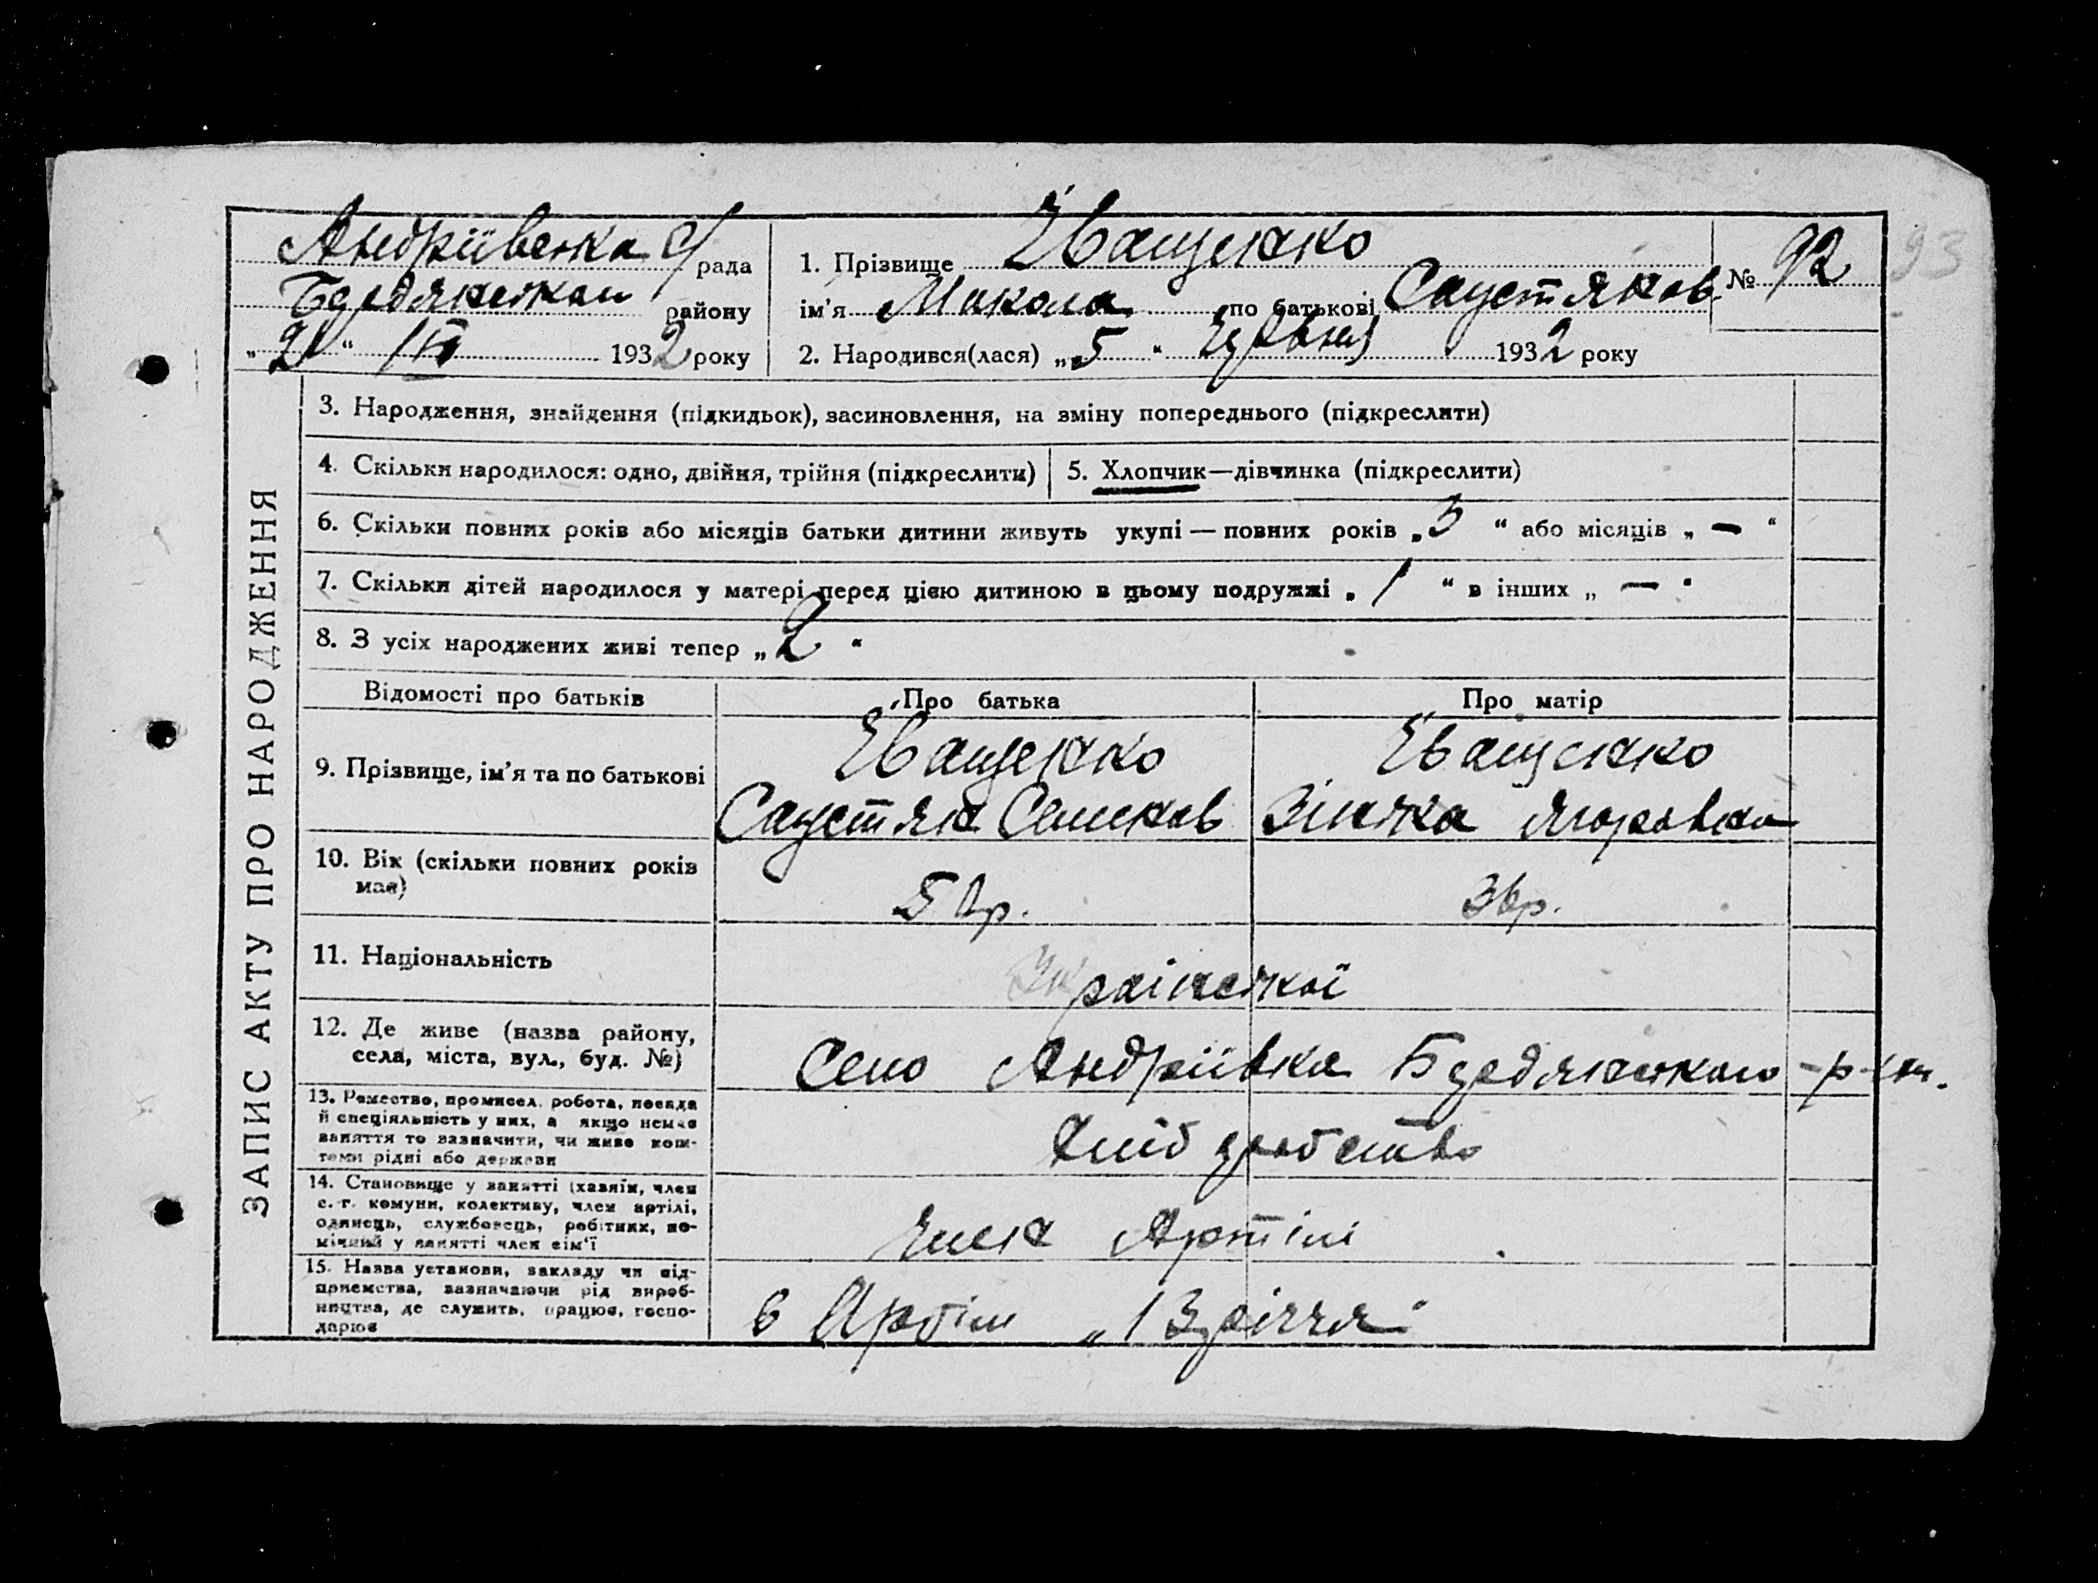 Андріївська с/рада
Бердянського району
„21“ IV 1932 року
1. Прізвище Іващенко
ім’я Микола по батькові Саустянов
№ 92
93
2. Народився(лася) „5“ 1932 року
ЗАПИС АКТУ ПРО НАРОДЖЕННЯ
3. Народження, знайдення (підкидьок), засиновлення, на зміну попереднього (підкреслити)
4. Скільки народилося: одно, двійня, трійня (підкреслити)
5. Хлопчик—дівчинка (підкреслити)
6. Скільки повних років або місяців батьки дитини живуть укупі — повних років „3“ або місяців „—“
7. Скільки дітей народилося у матері перед цією дитиною в цьому подружжі „1“ в інших „—“
8. З усіх народжених живі тепер „2“
Відомості про батьків
Про батька
Про матір
9. Прізвище, ім’я та по батькові
Іващенко
Саустян Семенов
Іващенко
Зінька
10. Вік (скільки повних років має)
52р.
36р.
11. Національність
Української
12. Де живе (назва району, села, міста, вул., буд. №)
Село Андріївка Бердянського р-ну.
13. Ремество, промисел, робота, посада й спеціяльність у них, а якщо немає заняття то зазначити, чи живе коштами рідні або держави
Хліборобство
14. Становище у занятті (хазяїн, член с.-г. комуни, колективу, член артілі, одинець, службовець, робітник, помічний у занятті член сім’ї
Член Артілі
15. Назва установи, закладу чи підприємства, зазначаючи рід виробництва, де служить, працює, господарює
в Артілі „13 річчя“